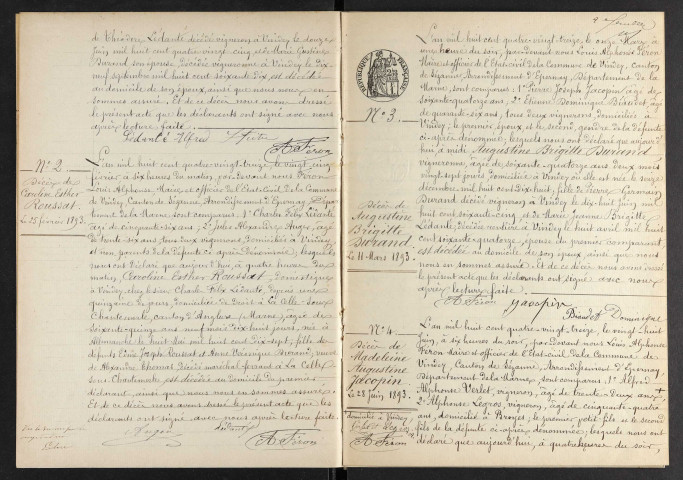 de Théodore Lédanté décédé vigneron à Vindey le douze
juin mil huit cent quatre-vingt-cinq, et de Marie Justine
Durand son épouse, décédée vigneronne à Vindey le dix
neuf septembre mil huit cent soixante dix est décédée
au domicile de son époux, ainsi que nous nous en
sommes assuré. Et de ce décès nous avons dressé
le présent acte que les déclarants ont signé avec nous
après lecture faite.
Lédanté Alfred
A Féron
N° 2
Décès de
Caroline Esther
Roussat.
Le 25 février 1893.
L'an mil huit cent quatre-vingt-treize, le vingt cinq
février à six heures du matin, par devant nous Féron
Louis Alphonse, Maire et officier de l'Etat-Civil de la Commune
de Vindey, Canton de Sézanne, Arrondissement d'Epernay, Dépar-
tement de la Marne, sont comparus : 1° Charles Félix Lédanté
âgé de cinquante-six ans, 2° Jules Alexandre Augé, âgé
de trente-six ans, tous deux vignerons, domiciliés à Vindey
et non parents de la défunte ci-après dénommée, lesquels
nous ont déclaré que aujourd'hui à quatre heures du
matin, Caroline Esther Roussat, domestique
à Vindey, chez le sieur Charles Félix Lédanté, depuis une
quinzaine de jours, domiciliée de droit à La Celle-sous-
Chantemerle, canton d'Anglure (Marne), âgée de
soixante-quinze ans neuf mois dix huit jours, née à
Allemanche le huit Mai mil huit cent dix-sept ; fille de
défunts Joseph Roussat et Anne Durand ; veuve
de Alexandre décédé maréchal-ferrant à La Celle-
sous-Chantemerle est décédée au domicile du premier
déclarant, ainsi que nous nous en sommes assuré.
Et de ce décès nous avons dressé le présent acte que les
déclarants ont signé avec nous après lecture faite.
Augé
Lédanté
A Féron
RÉPUBLIQUE FRANÇAISE
L'an mil huit cent quatre-vingt-treize, le onze Mars à
une heure du soir, par devant nous Louis Alphonse Féron
Maire et officier de l'Etat-Civil de la Commune de Vindey, Canton
de Sézanne, Arrondissement d'Epernay, Département de la
Marne, sont comparus : 1° Pierre Joseph Jacopin, âgé de
soixante-quatorze ans, 2° Etienne Dominique Biaudet, âgé
de quarante-six ans, tous deux vignerons, domiciliés à
Vindey ; le premier, époux et le second, gendre de la défunte
ci-après dénommée ; lesquels nous ont déclaré que aujour-
d'hui à midi, Augustine Brigitte Durand,
vigneronne, âgée de soixante-quatorze ans deux mois
vingt sept jours, domiciliée à Vindey où elle est née le seize
décembre mil huit cent dix-huit ; fille de Pierre Germain
Durand décédé vigneron à Vindey le dix-huit juin mil
huit cent soixante-cinq, et de Marie Jeanne Brigitte
Lédanté, décédée rentière à Vindey le huit avril mil huit
cent soixante-quatorze, épouse du premier comparant
est décédée au domicile de son époux, ainsi que nous
nous en sommes assuré. Et de ce décès nous avons dressé
le présent acte que les déclarants ont signé avec nous
après lecture faite.
A Féron
Jacopin
Biaudet Dominique
N° 3.
Décès de
Augustine
Brigitte
Durand.
Le 11 Mars 1893.
N° 4
Décès de
Madeleine
Augustine
Jacopin
Le 28 juin 1893.
domiciliée à Vindey
A Féron
L'an mil huit cent quatre-vingt-treize, le vingt-huit
juin, à six heures du soir, par devant nous Louis Alphonse
Féron Maire et officier de l'Etat-Civil de la Commune de
Vindey, Canton de Sézanne, Arrondissement d'Epernay,
Département de la Marne, sont comparus : 1° Alfred
Alphonse Verlet, vigneron, âgé de trente-deux ans,
2° Alphonse Legros, vigneron, âgé de cinquante-quatre
ans, domicilié à Broyes ; le premier petit-fils et le second
fils de la défunte ci-après dénommée ; lesquels nous ont
déclaré que aujourd'hui, à quatre heures du soir,